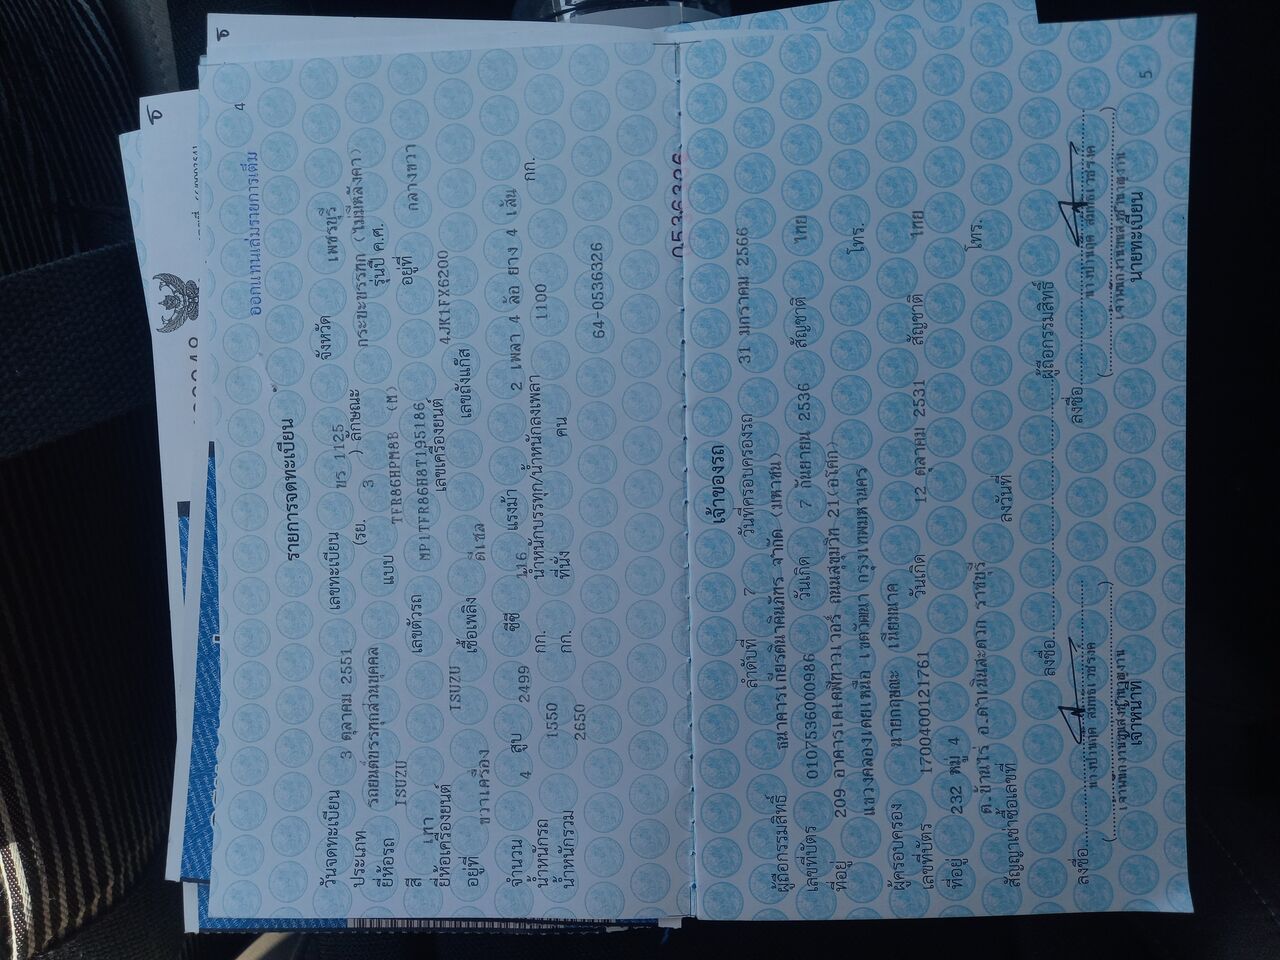 4
ออกแทนเล่มรายการเต็ม
รายการจดทะเบียน
วันจดทะเบียน 3 ตุลาคม 2551 เลขทะเบียน บร 1125 จังหวัด เพชรบุรี
ประเภท รถยนต์บรรทุกส่วนบุคคล (รย. 3 ) ลักษณะ กระบะบรรทุก (ไม่มีหลังคา)
ยี่ห้อรถ ISUZU แบบ TFR86HPM8B (M) รุ่นปี ค.ศ.
สี เทา เลขตัวรถ MP1TFR86H8T195186 อยู่ที่ กลางขวา
ยี่ห้อเครื่องยนต์ ISUZU เลขเครื่องยนต์ 4JK1FX6200
อยู่ที่ ขวาเครื่อง เชื้อเพลิง ดีเซล เลขถังแก๊ส
จำนวน 4 สูบ 2499 ซีซี 116 แรงม้า 2 เพลา 4 ล้อ ยาง 4 เส้น
น้ำหนักรถ 1550 กก. น้ำหนักบรรทุก/น้ำหนักลงเพลา 1100 กก.
น้ำหนักรวม 2650 กก. ที่นั่ง คน
64-0536326
0536326
เจ้าของรถ
ลำดับที่ 7 วันที่ครอบครองรถ 31 มกราคม 2566
ผู้ถือกรรมสิทธิ์ ธนาคารเกียรตินาคินภัทร จำกัด (มหาชน)
เลขที่บัตร 0107536000986 วันเกิด 7 กันยายน 2536 สัญชาติ ไทย
ที่อยู่ 209 อาคารเคเคพีทาวเวอร์ ถนนสุขุมวิท 21(อโศก)
แขวงคลองเตยเหนือ เขตวัฒนา กรุงเทพมหานคร โทร.
ผู้ครอบครอง นายกฤษณะ เนียมนาค
เลขที่บัตร 1700400121761 วันเกิด 12 ตุลาคม 2531 สัญชาติ ไทย
ที่อยู่ 232 หมู่ 4
ต.บ้านไร่ อ.ดำเนินสะดวก ราชบุรี โทร.
สัญญาเช่าซื้อเลขที่ ลงวันที่
ลงชื่อ ผู้ถือกรรมสิทธิ์
ลงชื่อ ลงชื่อ
เจ้าพนักงานขนส่งชำนาญงาน เจ้าพนักงานขนส่งชำนาญงาน
เจ้าหน้าที่ นายทะเบียน
5